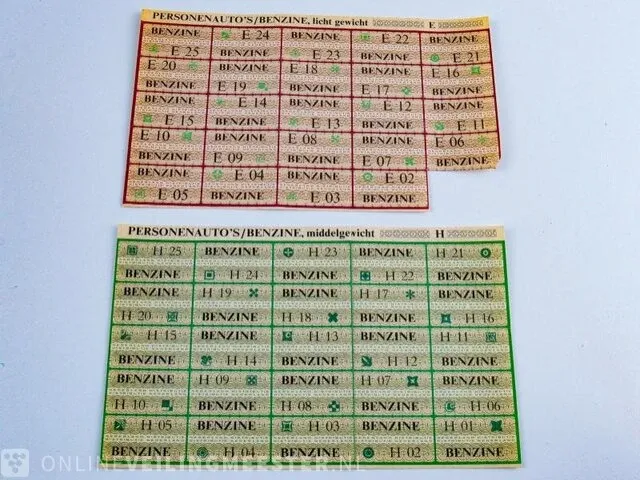 PERSONENAUTO'S/BENZINE, licht gewicht E
BENZINE E 24 BENZINE E 22 BENZINE
E 25 BENZINE E 23 BENZINE E 21
E 20 BENZINE E 18 BENZINE E 16
BENZINE E 19 BENZINE E 17 BENZINE
BENZINE E 14 BENZINE E 12 BENZINE
E 15 BENZINE E 13 BENZINE E 11
E 10 BENZINE E 08 BENZINE E 06
BENZINE E 09 BENZINE E 07 BENZINE
BENZINE E 04 BENZINE E 02
E 05 BENZINE E 03 BENZINE
PERSONENAUTO'S/BENZINE, middelgewicht H
H 25 BENZINE H 23 BENZINE H 21
BENZINE H 24 BENZINE H 22 BENZINE
BENZINE H 19 BENZINE H 17 BENZINE
H 20 BENZINE H 18 BENZINE H 16
H 15 BENZINE H 13 BENZINE H 11
BENZINE H 14 BENZINE H 12 BENZINE
BENZINE H 09 BENZINE H 07 BENZINE
H 10 BENZINE H 08 BENZINE H 06
H 05 BENZINE H 03 BENZINE H 01
BENZINE H 04 BENZINE H 02 BENZINE
ONLINEVEILINGMEESTER.NL